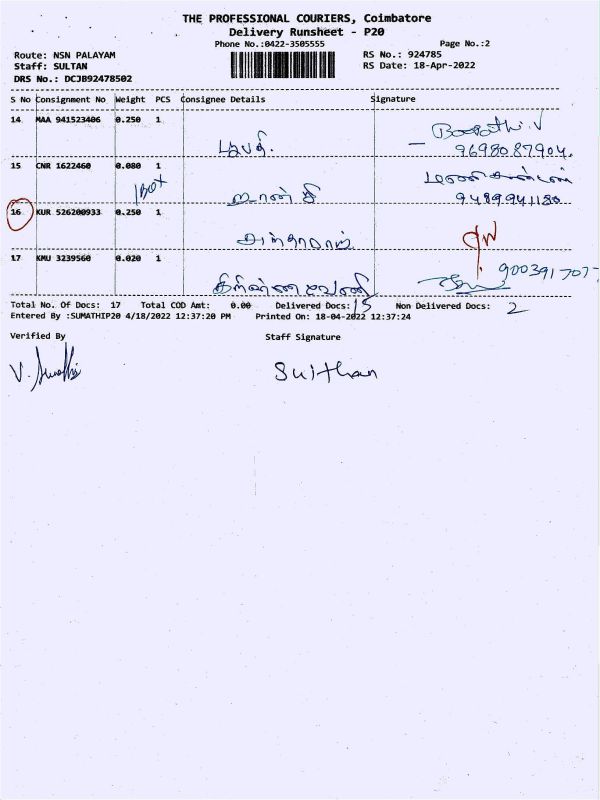 THE PROFESSIONAL COURIERS, Coimbatore
Delivery Runsheet - P20
Phone No.:0422-3505555
Page No.:2
Route: NSN PALAYAM
RS No.: 924785
Staff: SULTAN
RS Date: 18-Apr-2022
DRS No.: DCJB92478502
S No Consignment No Weight PCS Consignee Details Signature
14 MAA 941523406 0.250 1
Boopathi.V
பூபதி.
9698087904.
15 CNR 1622460 0.080 1
1Box
ஜான்சி
9489941180
16 KUR 526200933 0.250 1
17 KMU 3239560 0.020 1
900391707
Total No. Of Docs: 17 Total COD Amt: 0.00 Delivered Docs: 15 Non Delivered Docs: 2
Entered By :SUMATHIP20 4/18/2022 12:37:20 PM Printed On: 18-04-2022 12:37:24
Verified By Staff Signature
Sulthan